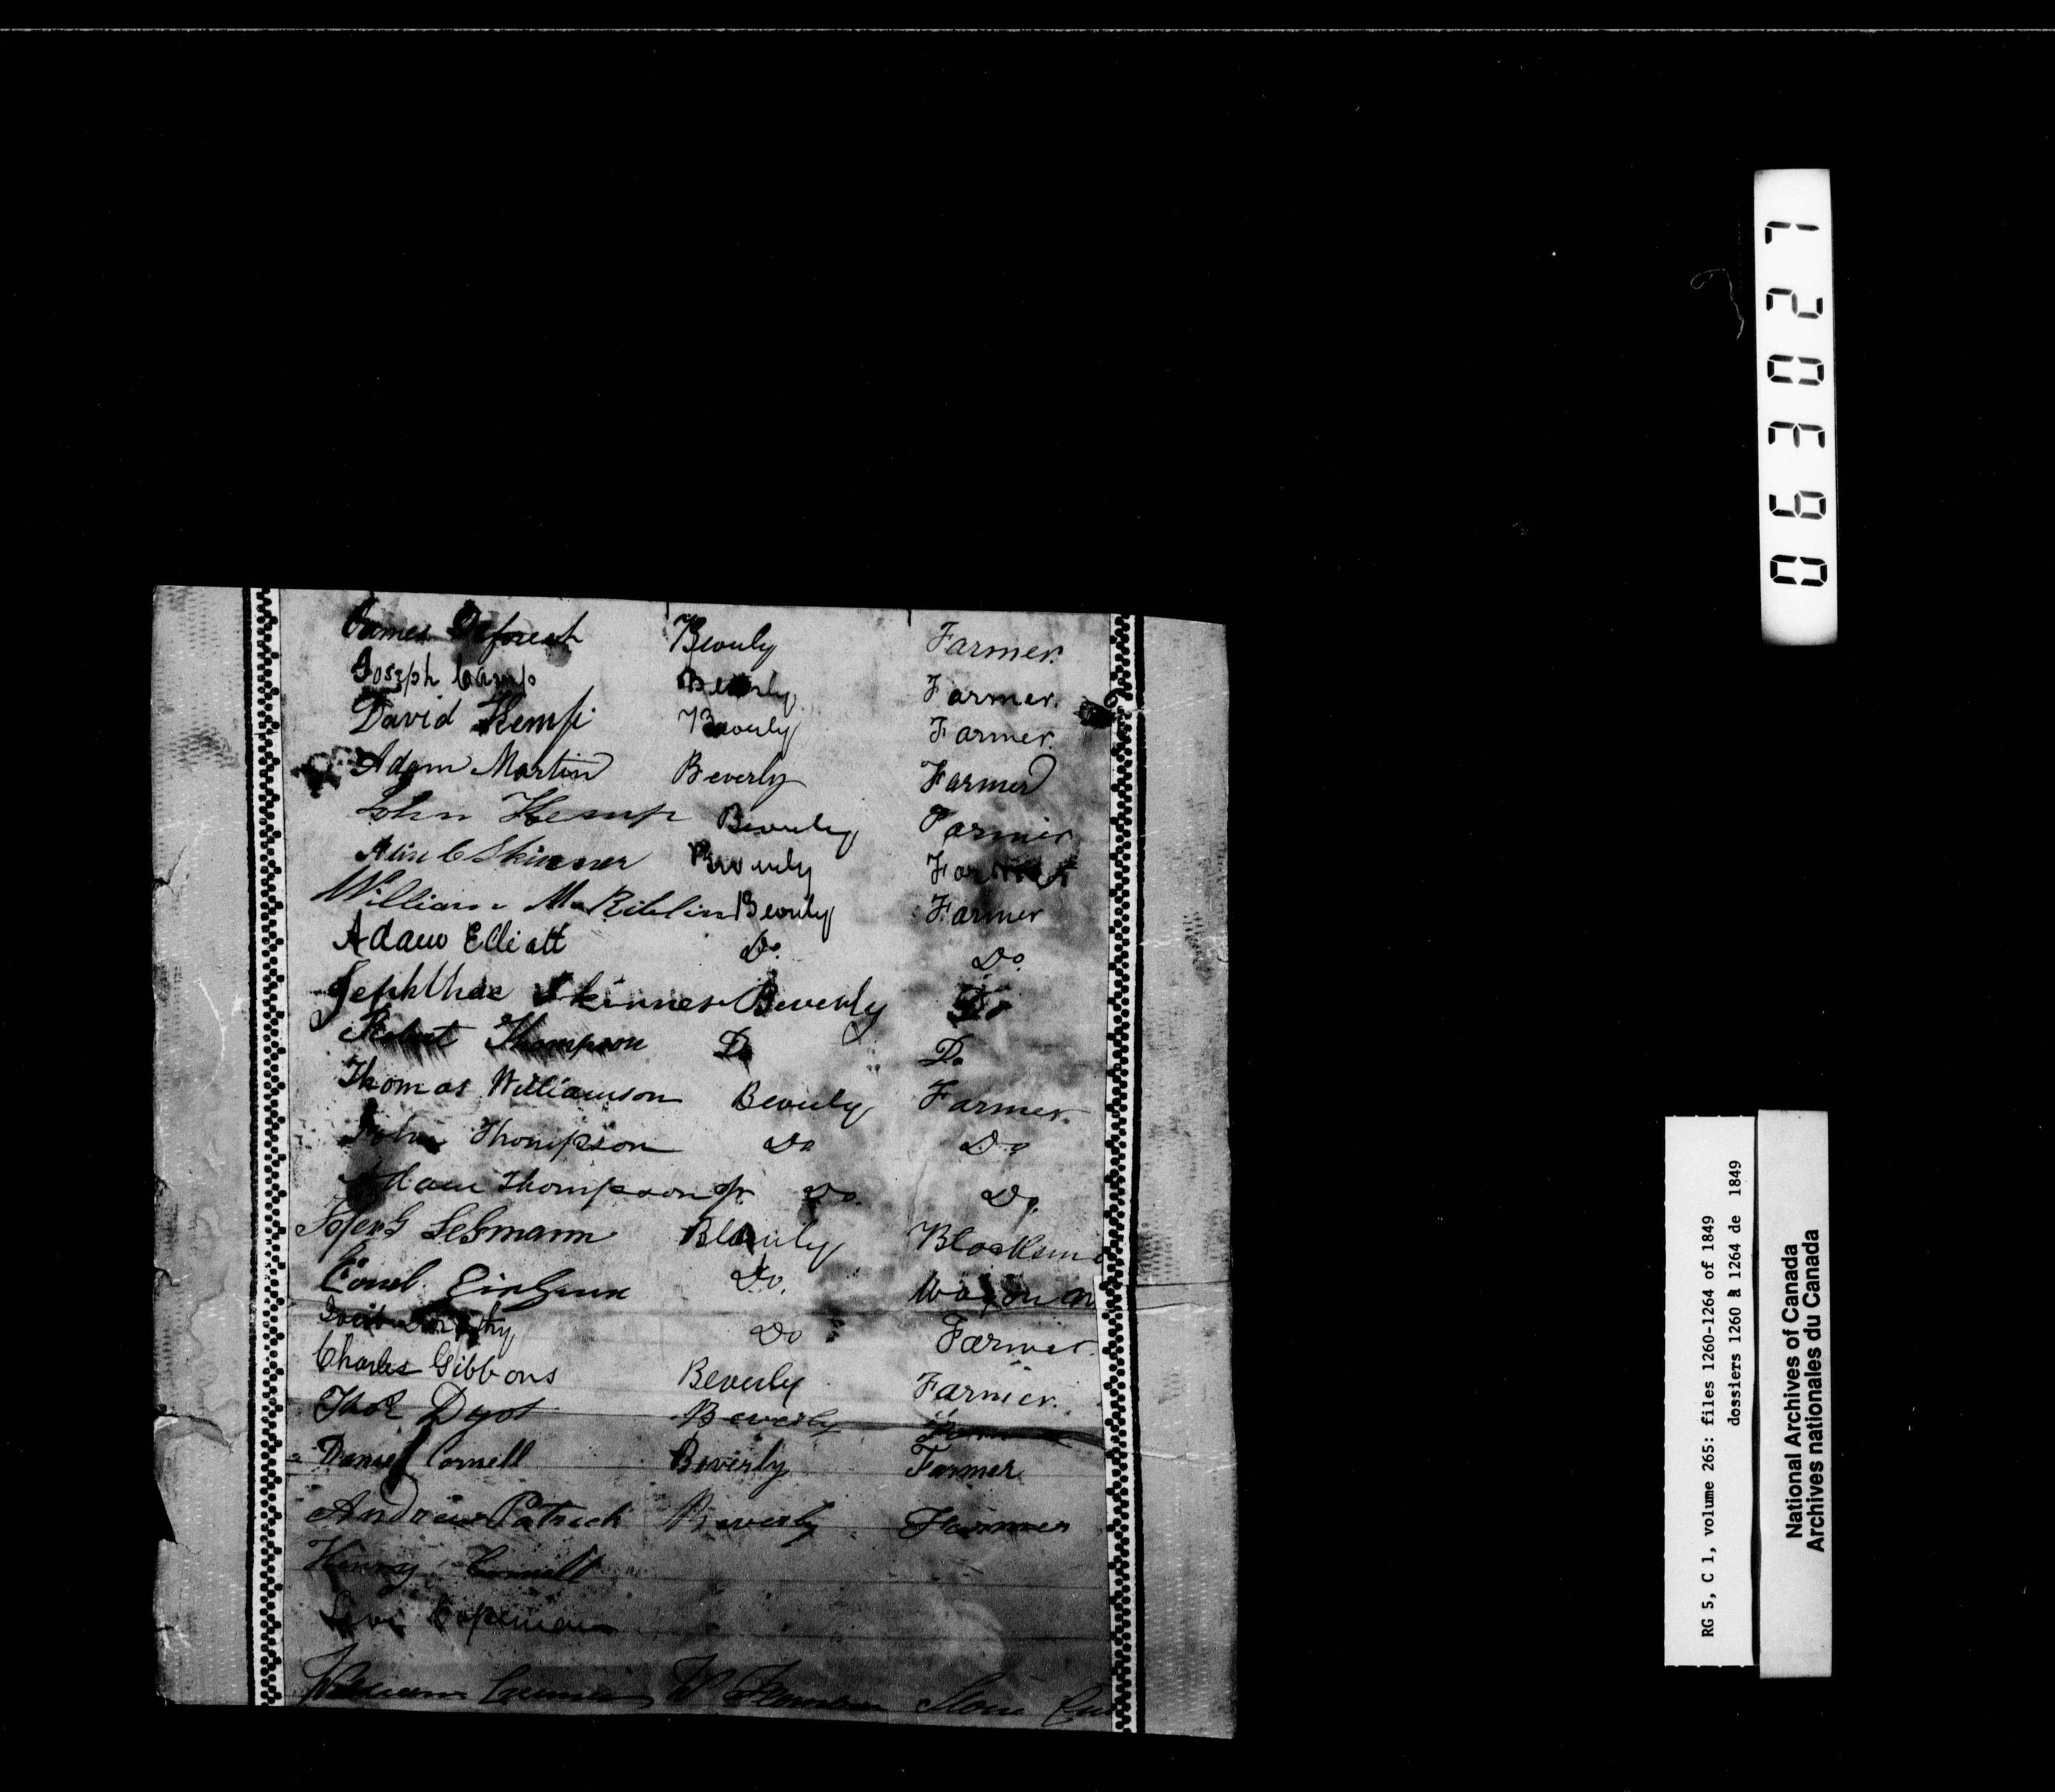 James Deforest Beverly Farmer.
Joseph Camp Beverly Farmer.
David Kemp Beverly Farmer.
Adam Martin Beverly Farmer
John Kemp Beverly Farmer
Skinner Beverly Farmer
William Beverly Farmer
Adam Elliott Do. Do.
Jephthae Skinner Beverly Do
Robert Thompson Do Do.
Thomas Williamson Beverly Farmer.
John Thompson Do Do
Adam Thompson Jr Do Do.
Beverly Blacksm
Do. Wagon m
Do Farmer.
Charles Gibbons Beverly Farmer.
Thos Dyot Beverly Farmer
Daniel Cornell Beverly Farmer
Andrew Patrick Beverly Farmer
Henry Cornell
Levi
William W Flamboro Stone Cut
063027
RG 5, C 1, volume 265: files 1260-1264 of 1849
dossiers 1260 à 1264 de 1849
National Archives of Canada
Archives nationales du Canada